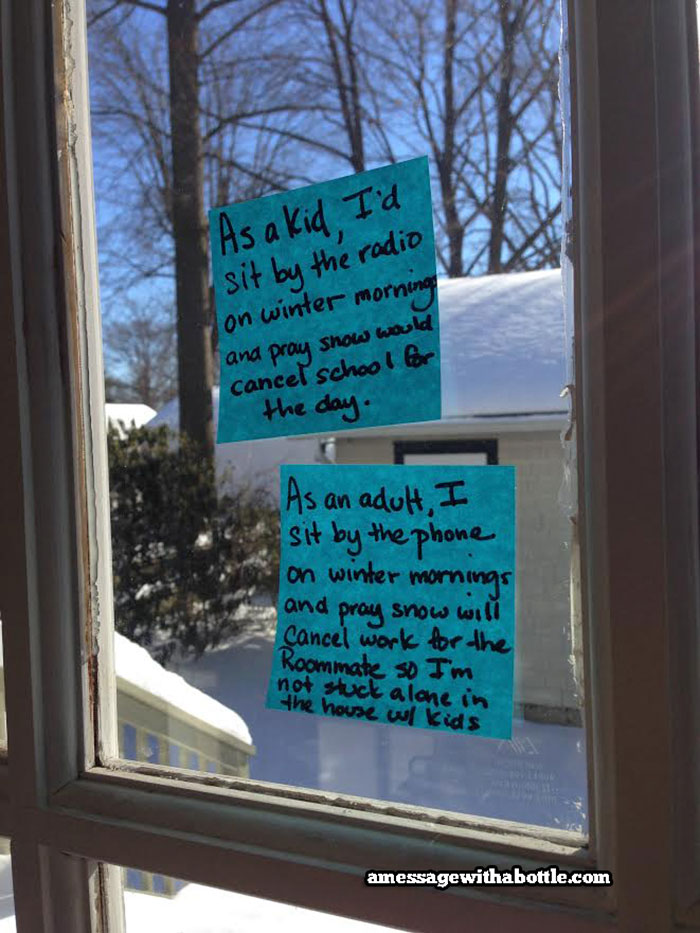 As a kid, I'd
sit by the radio
on winter mornings
and pray snow would
cancel school for
the day.
As an adult, I
sit by the phone
on winter mornings
and pray snow will
cancel work for the
Roommate so I'm
not stuck alone in
the house w/ kids
amessagewithabottle.com